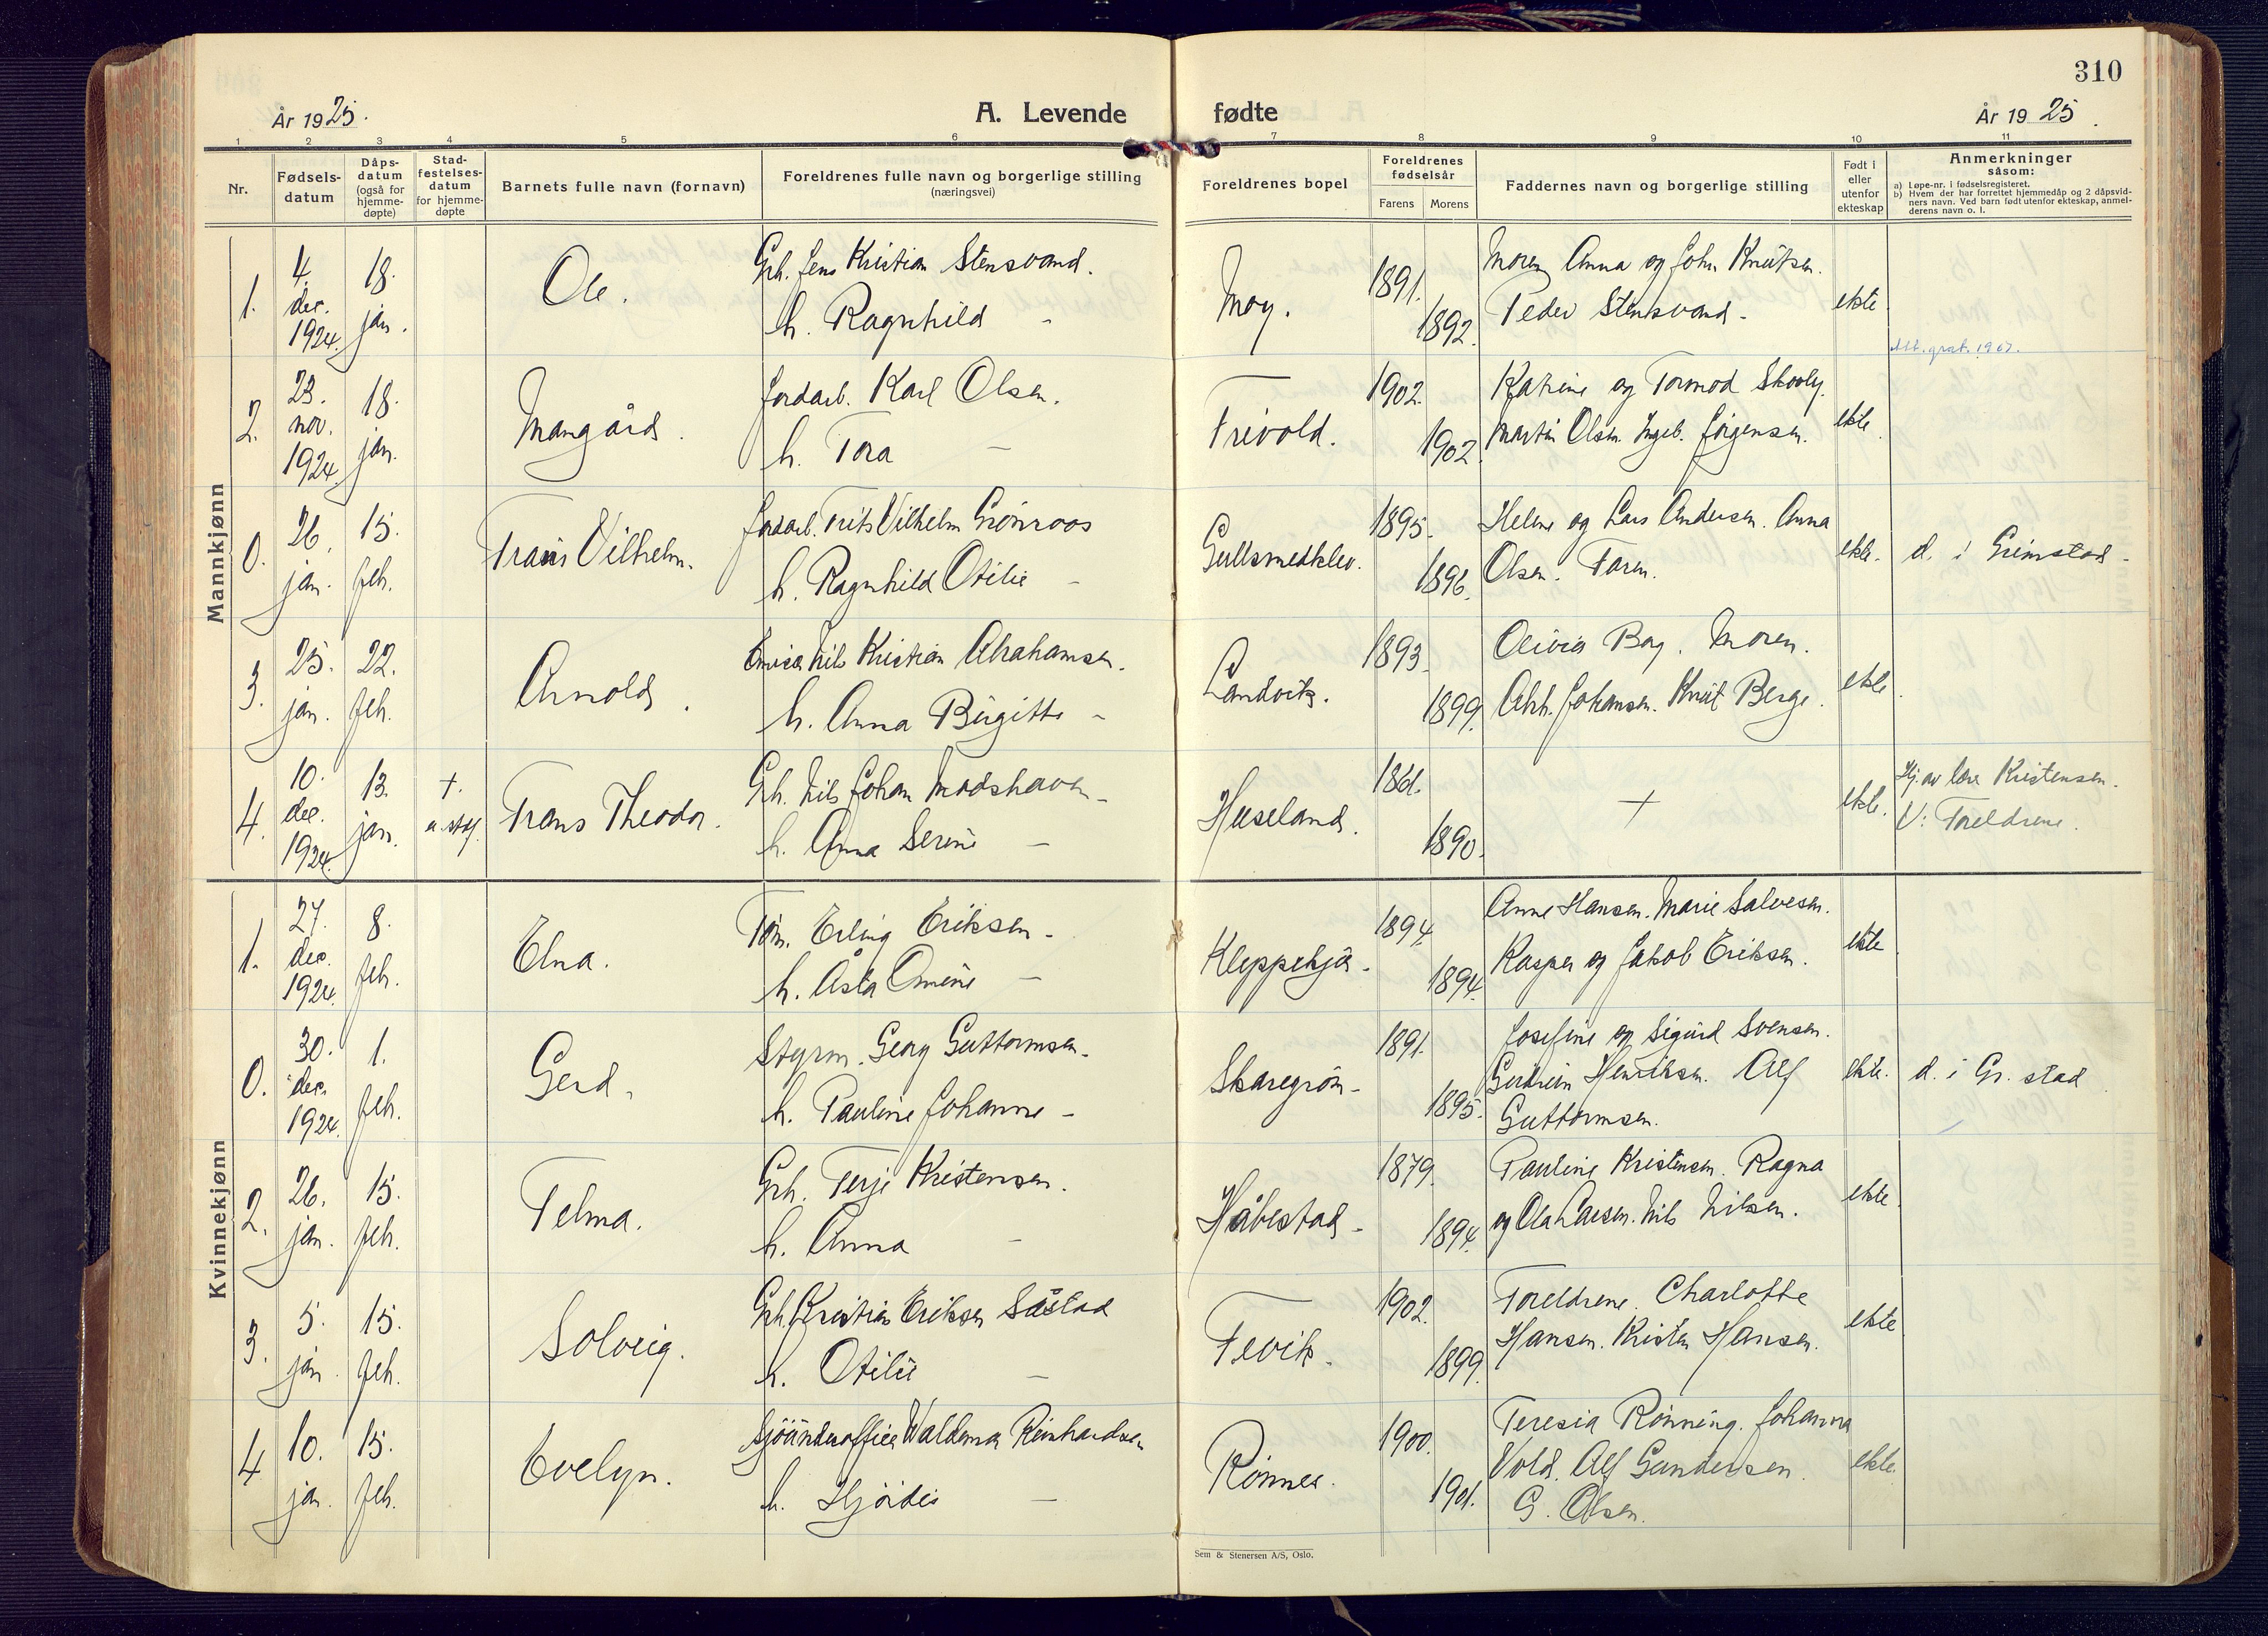 310
År 1925.
A. Levende fødte
År 1925.
1 2 3 4 5 6 7 8 9 10 11
Nr.
Fødsels-
datum
Dåps-
datum
(også for
hjemme-
døpte)
Stad-
festelses-
datum
for hjemme-
døpte
Barnets fulle navn (fornavn)
Foreldrenes fulle navn og borgerlige stilling
(næringsvei)
Foreldrenes bopel
Foreldrenes
fødselsår
Farens Morens
Faddernes navn og borgerlige stilling
Født i
eller
utenfor
ekteskap
Anmerkninger
såsom:
a) Løpe-nr. i fødselsregisteret.
b) Hvem der har forrettet hjemmedåp og 2 dåpsvid-
ners navn. Ved barn født utenfor ekteskap, anmel-
derens navn o. l.
Mannkjønn
1. 4. des. 1924. 18. jan. Ole. Grb. Jens Kristian Stensvand.
h. Ragnhild -
Moy. 1891. 1892. Moren Anna og John Knutsen.
Peder Stensvand. ekte
2. 23. nov. 1924. 18. jan. Mangård. Jordarb. Karl Olsen.
h. Tora -
Frivold. 1902. 1902 Katrine og Tormod
Martin Olsen. Ingeb. Jørgensen. ekte.
0. 26. jan. 15. feb. Frans Vilhelm. Jordarb. Frits Vilhelm Grönroos
h. Ragnhild Otilie -
Gullsmedklev. 1895. 1896. Helene og Lars Andersen. Anna
Olsen. Faren. ekte. d. i Grimstad -
3. 25. jan. 22. feb. Arnold. Nils Kristian Abrahamsen.
h. Anna Birgitte -
Landvik. 1893. 1899. Olivia Bay. Moren.
Abr. Johansen. Knut Berge. ekte.
4. 10. des. 1924. 13. jan. + Frans Theodor. Grb. Nils Johan
h. Anna Serine -
Huseland. 1890. + ekte. Hj. av lærer Kristensen.
V: Foreldrene.
Kvinnekjønn
1. 27. des. 1924. 8. feb. Elna. Töm. Erling Eriksen -
h. Åsta Omine -
Kleppekjær - 1894. 1894. Anne Hansen. Marie Salvesen.
Kasper og Jakob Eriksen. ekte.
0. 30. des. 1924. 1. feb. Gerd. Styrm. Georg Guttormsen.
h. Pauline Johanne -
Skaregrøn - 1891. 1895. Josefine og Sigurd Svensen.
Henriksen. Alf
Guttormsen. ekte. d. i Gr. stad
2. 26. jan. 15. feb. Telma. Grb. Terje Kristensen.
h. Anna -
Håbestad - 1879. 1894. Pauline Kristensen. Ragna
og Ola Larsen. Nils Nilsen. ekte.
3. 5. jan. 15. feb. Solveig. Grb. Kristian Eriksen Såstad
h. Otilie -
Fevik. 1902. 1899. Foreldrene. Charlotte
Hansen. Kristen Hansen. ekte
4 10. jan. 15. feb. Evelyn. Sjöunderofficer Waldemar Reinhardsen
h. Hjördis -
Rønnes. 1900. 1901. Teresia Rønning. Johanna
Vold. Alf Gundersen.
G. Olsen. ekte.
Sem & Stenersen A/S, Oslo.